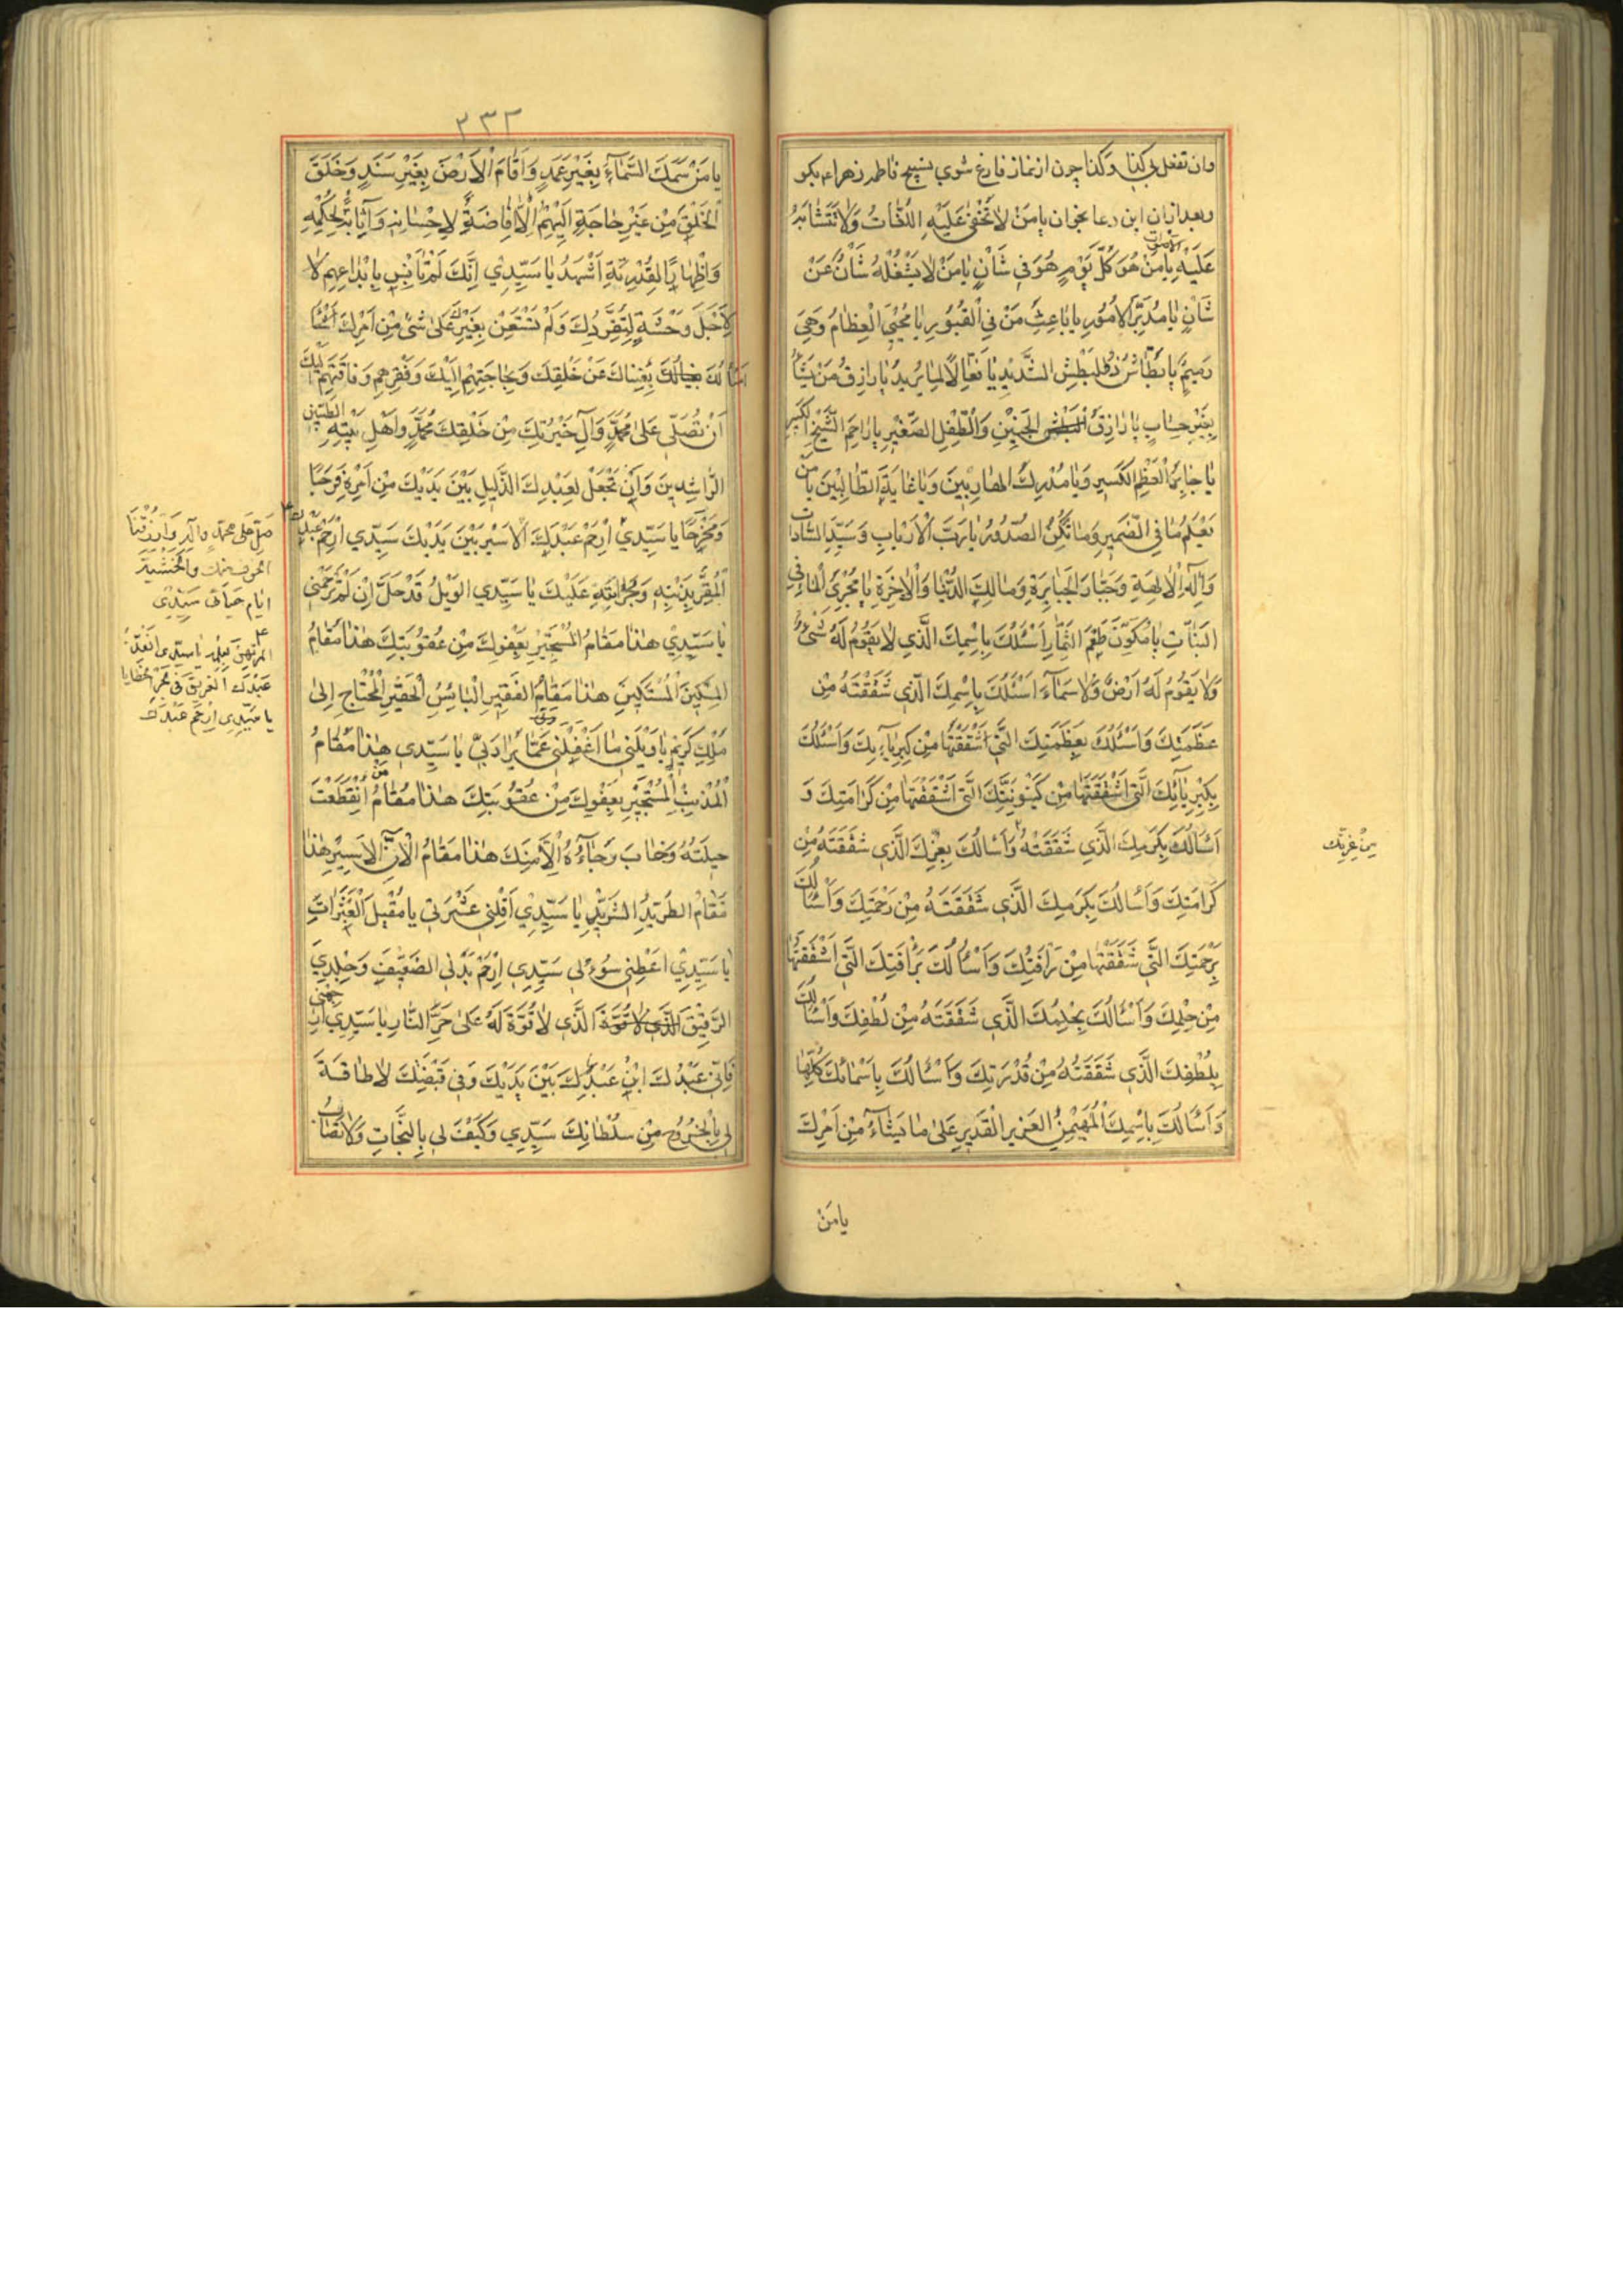 وان تفعل بی کذا وکذا چون از نماز فارغ شوی تسبیح فاطمه زهرا ع بکو
وبعد ازان این دعا بخوان یا مَنْ لا تَخْفیٰ عَلَیْهِ اللُّغاتُ وَلا تَتَشابَهُ
الاصوات
عَلَیْهِ یا مَنْ هُوَ کُلَّ یَوْمٍ هُوَ فی شَأنٍ یا مَنْ لا یَشْغَلُهُ شَأنٌ عَنْ
شَأنٍ یا مُدَبِّرَ الاُمُورِ یا باعِثَ مَنْ فِی الْقُبُورِ یا مُحْیِیَ الْعِظامِ وَهِیَ
رَمیمٌ یا بَطّاشُ ذَا الْبَطْشِ الشَّدیدِ یا فَعّالاً لِما یُریدُ یا رازِقَ مَنْ یَشآءُ
بِغَیْرِ حِسابٍ یا رازِقَ الْجَنینِ وَالطِّفْلِ الصَّغیرِ یا راحِمَ الشَّیْخِ الکَبیرِ
یا جابِرَ الْعَظْمِ الْکَسیرِ وَیا مُدْرِکَ الهارِبینَ وَیا غایَةَ الطّالِبینَ یا مَنْ
یَعْلَمُ ما فِی الضَّمیرِ وَما تُکِنُّ الصُّدُورُ یا رَبَّ الْاَرْبابِ وَسَیِّدَ السّاداتِ
وَاِلٰهَ الْاٰلِهَةِ وَجَبّارَ الْجَبابِرَةِ وَمالِکَ الدُّنْیا وَالْاٰخِرَةِ یا مُجْرِیَ الْماءِ فِی
النَّباتِ یا مُکَوِّنَ طَعْمِ الثِّمارِ اَسْئَلُکَ بِاِسْمِکَ الَّذی لا یَقُومُ لَهُ شَیْءٌ
وَلا یَقُومُ لَهُ اَرْضٌ وَلا سَمآءٌ اَسْئَلُکَ بِاِسْمِکَ الَّذی شَقَقْتَهُ مِنْ
عَظَمَتِکَ وَاَسْئَلُکَ بِعَظَمَتِکَ الَّتی اشْقَقْتَها مِنْ کِبْرِیآءِکَ وَاَسْئَلُکَ
بِکِبْرِیائِکَ الَّتی اشْقَقْتَها مِنْ کَیْنُونِیَّتِکَ الَّتی اشْقَقْتَها مِنْ کَرامَتِکَ وَ
اَسْألُکَ بِکَرَمِکَ الَّذی شَقَقْتَهُ وَاَسْألُکَ بِعِزِّکَ الَّذی شَقَقْتَهُ مِنْ
من عزتک
کَرامَتِکَ وَاَسْألُکَ بِکَرَمِکَ الَّذی شَقَقْتَهُ مِنْ رَحْمَتِکَ وَاَسْألُکَ
بِرَحْمَتِکَ الَّتی شَقَقْتَها مِنْ رَأفَتِکَ وَاَسْألُکَ بِرَأفَتِکَ الَّتی اشْقَقْتَها
مِنْ حِلْمِکَ وَاَسْألُکَ بِحِلْمِکَ الَّذی شَقَقْتَهُ مِنْ لُطْفِکَ وَاَسْألُکَ
بِلُطْفِکَ الَّذی شَقَقْتَهُ مِنْ قُدْرَتِکَ وَاَسْألُکَ بِاَسْمائِکَ کُلِّها
وَاَسْألُکَ بِاِسْمِکَ الْمُهَیْمِنِ العَزیزِ الْقَدیرِ عَلیٰ ما یَشآءُ مِنْ اَمْرِکَ
یا مَنْ
٢٣٢
یا مَنْ سَمَکَ السَّمآءَ بِغَیْرِ عَمَدٍ وَاَقامَ الْاَرْضَ بِغَیْرِ سَنَدٍ وَخَلَقَ
الْخَلْقَ مِنْ غَیْرِ حاجَةٍ اِلَیْهِمْ اِلّا اِفاضَةً لِاِحْسانِهِ وَاِبانَةً لِحِکْمَتِهِ
وَاِظْهاراً لِقُدْرَتِهِ اَشْهَدُ یا سَیِّدی اِنَّکَ لَمْ تَأنِسْ بِاِبْداعِهِمْ لا
لِاَجْلِ وَحْشَةٍ لِتَفَرُّدِکَ وَلَمْ تَسْتَعِنْ بِغَیْرِکَ عَلیٰ شَیْءٍ مِنْ اَمْرِکَ
اَسْألُکَ بِغِناکَ عَنْ خَلْقِکَ وَبِحاجَتِهِمْ اِلَیْکَ وَفَقْرِهِمْ وَفاقَتِهِمْ اِلَیْکَ
اَنْ تُصَلِّیَ عَلیٰ مُحَمَّدٍ وَآلِ خَیْرَتِکَ مِنْ خَلْقِکَ مُحَمَّدٍ وَاَهْلِ بَیْتِهِ الطَّیِّبینَ
الرّاشِدینَ وَاَنْ تَجْعَلَ لِعَبْدِکَ الذَّلیلِ بَیْنَ یَدَیْکَ مِنْ اَمْرِهِ فَرَجاً
وَمَخْرَجاً یا سَیِّدی اِرْحَمْ عَبْدَکَ الْاَسیرَ بَیْنَ یَدَیْکَ سَیِّدی اِرْحَمْ عَبْدَکَ
الْمُقِرَّ بِذَنْبِهِ وَجُرْأتِهِ عَلَیْکَ یا سَیِّدی الوَیْلُ قَدْ حَلَّ اِنْ لَمْ تَرْحَمْنی
یا سَیِّدی هٰذا مَقامُ الْمُسْتَجیرِ بِعَفْوِکَ مِنْ عُقُوبَتِکَ هٰذا مَقامُ
الْمِسْکینِ الْمُسْتَکینِ هٰذا مَقامُ الفَقیرِ الْبائِسِ الْحَقیرِ الْمُحْتاجِ اِلیٰ
مَلِکٍ کَریمٍ یا وَیْلَتی ما اَغْفَلَنی عَمّا یُرادُ بی یا سَیِّدی هٰذا مَقامُ
الْمُذْنِبِ الْمُسْتَجیرِ بِعَفْوِکَ مِنْ عُقُوبَتِکَ هٰذا مَقامُ مَنِ انْقَطَعَتْ
حیلَتُهُ وَخابَ رَجآءُهُ اِلّا مِنْکَ هٰذا مَقامُ الْاَسیرِ هٰذا
مَقامُ الطَّریدِ الشَّریدِ یا سَیِّدی اَقِلْنی عَثْرَتی یا مُقیلَ الْعَثَراتِ
یا سَیِّدی اَعْطِنی سُؤْلی سَیِّدی اِرْحَمْ بَدَنی الضَّعیفَ وَجِلْدِی
الرَّقیقَ الَّذی لا قُوَّةَ لَهُ عَلیٰ حَرِّ النّارِ یا سَیِّدی اِرْحَمْنی
فَاِنّی عَبْدُکَ ابْنُ عَبْدِکَ بَیْنَ یَدَیْکَ وَفی قَبْضَتِکَ لا طاقَةَ
لی بِالْخُرُوجِ مِنْ سُلْطانِکَ سَیِّدی وَکَیْفَ لی بِالنَّجاةِ وَلا تُصابُ
صَلِّ عَلی مُحَمَّدٍ وَآلِهِ وَارْزُقْنَا
الخوف منک وَالْخَشْیَةَ
ایّام حَیاتی سَیِّدی
عَبْدَکَ الْغَریقَ فی بَحْرِ الْخَطایا
یا سَیِّدی اِرْحَم عَبْدَکَ